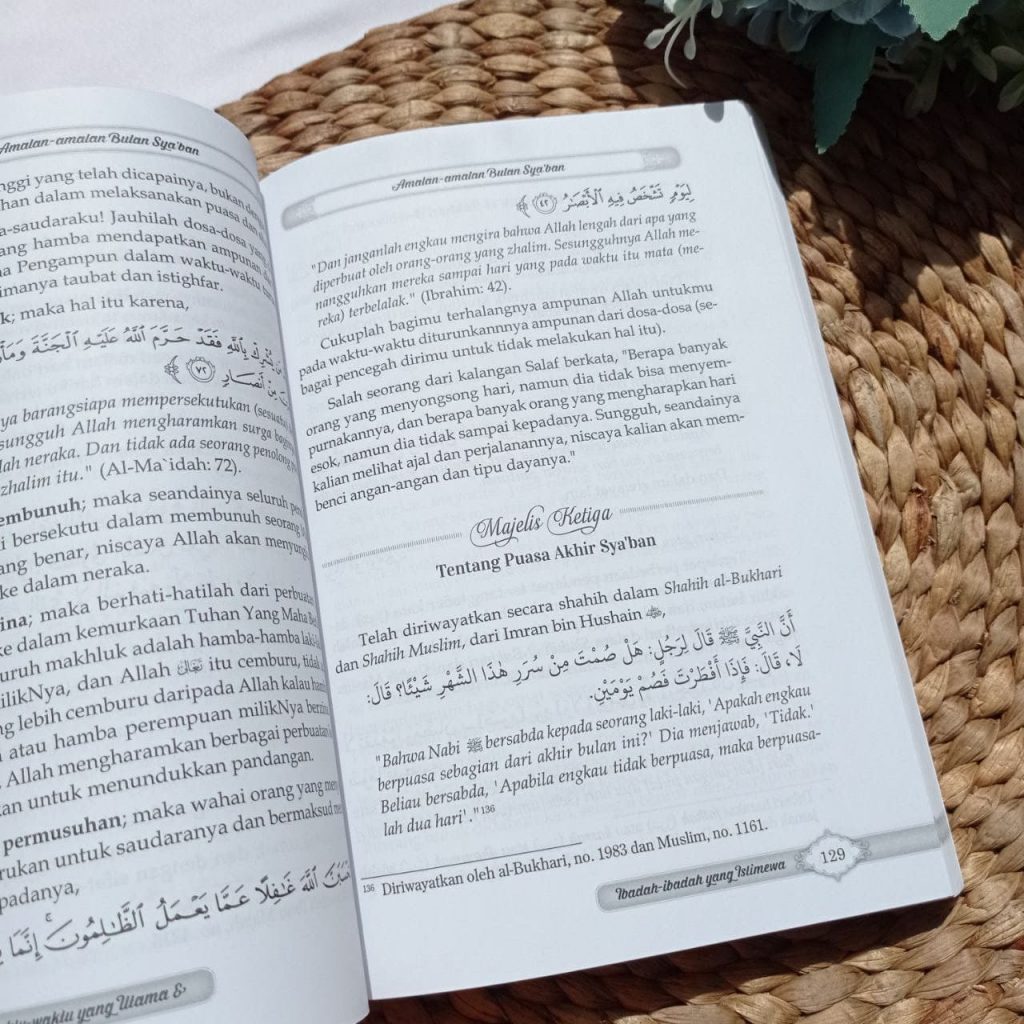 Amalan-amalan Bulan Sya'ban
nggi yang telah dicapainya, bukan
han dalam melaksanakan puasa dan
a-saudaraku! Jauhilah dosa-dosa
ang hamba mendapatkan ampunan
a Pengampun dalam waktu-waktu
imanya taubat dan istighfar.
k; maka hal itu karena,
يُشْرِكْ بِٱللَّهِ فَقَدْ حَرَّمَ ٱللَّهُ عَلَيْهِ ٱلْجَنَّةَ
مِنْ أَنصَارٍ ﴿٧٢﴾
ya barangsiapa mempersekutukan
sungguh Allah mengharamkan surga
lah neraka. Dan tidak ada seorang penolong
zhalim itu." (Al-Ma`idah: 72).
embunuh; maka seandainya seluruh
i bersekutu dalam membunuh seorang
ang benar, niscaya Allah akan
ke dalam neraka.
ina; maka berhati-hatilah dari
ke dalam kemurkaan Tuhan Yang Maha
uruh makhluk adalah hamba-hamba
milikNya, dan Allah تَعَالَى itu cemburu, tidak
ng lebih cemburu daripada Allah kalau
i atau hamba perempuan milikNya
. Allah mengharamkan berbagai
kan untuk menundukkan pandangan.
permusuhan; maka wahai orang yang
rukan untuk saudaranya dan bermaksud
padanya,
ٱللَّهَ غَٰفِلًا عَمَّا يَعْمَلُ ٱلظَّٰلِمُونَ ۚ إِنَّمَا
yang Utama &
Amalan-amalan Bulan Sya'ban
لِيَوْمٍ تَشْخَصُ فِيهِ ٱلْأَبْصَٰرُ ﴿٤٢﴾
"Dan janganlah engkau mengira bahwa Allah lengah dari apa yang
diperbuat oleh orang-orang yang zhalim. Sesungguhnya Allah me-
nangguhkan mereka sampai hari yang pada waktu itu mata (me-
reka) terbelalak." (Ibrahim: 42).
Cukuplah bagimu terhalangnya ampunan Allah untukmu
pada waktu-waktu diturunkannnya ampunan dari dosa-dosa (se-
bagai pencegah dirimu untuk tidak melakukan hal itu).
Salah seorang dari kalangan Salaf berkata, "Berapa banyak
orang yang menyongsong hari, namun dia tidak bisa menyem-
purnakannya, dan berapa banyak orang yang mengharapkan hari
esok, namun dia tidak sampai kepadanya. Sungguh, seandainya
kalian melihat ajal dan perjalanannya, niscaya kalian akan mem-
benci angan-angan dan tipu dayanya."
Majelis Ketiga
Tentang Puasa Akhir Sya'ban
Telah diriwayatkan secara shahih dalam Shahih al-Bukhari
dan Shahih Muslim, dari Imran bin Hushain ﵁,
أَنَّ النَّبِيَّ ﷺ قَالَ لِرَجُلٍ: هَلْ صُمْتَ مِنْ سُرَرِ هٰذَا الشَّهْرِ شَيْئًا؟ قَالَ:
لَا، قَالَ: فَإِذَا أَفْطَرْتَ فَصُمْ يَوْمَيْنِ.
"Bahwa Nabi ﷺ bersabda kepada seorang laki-laki, 'Apakah engkau
berpuasa sebagian dari akhir bulan ini?' Dia menjawab, 'Tidak.'
Beliau bersabda, 'Apabila engkau tidak berpuasa, maka berpuasa-
lah dua hari'."136
136 Diriwayatkan oleh al-Bukhari, no. 1983 dan Muslim, no. 1161.
Ibadah-ibadah yang Istimewa 129